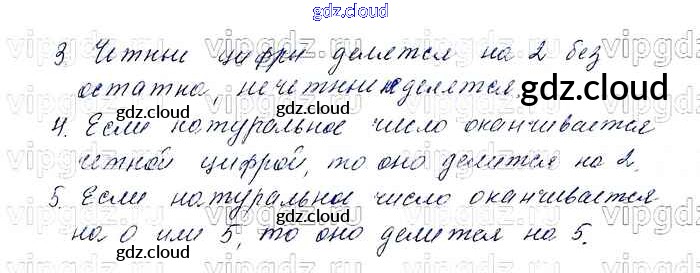 gdz.cloud
3 Четные цифры делятся на 2 без
остатка, нечетные не делятся.
gdz.cloud
4. Если натуральное число оканчивается
gdz.cloud
четной цифрой, то оно делится на 2.
5. Если натуральное число оканчивается
gdz.cloud
на 0 или 5, то оно делится на 5.
gdz.cloud